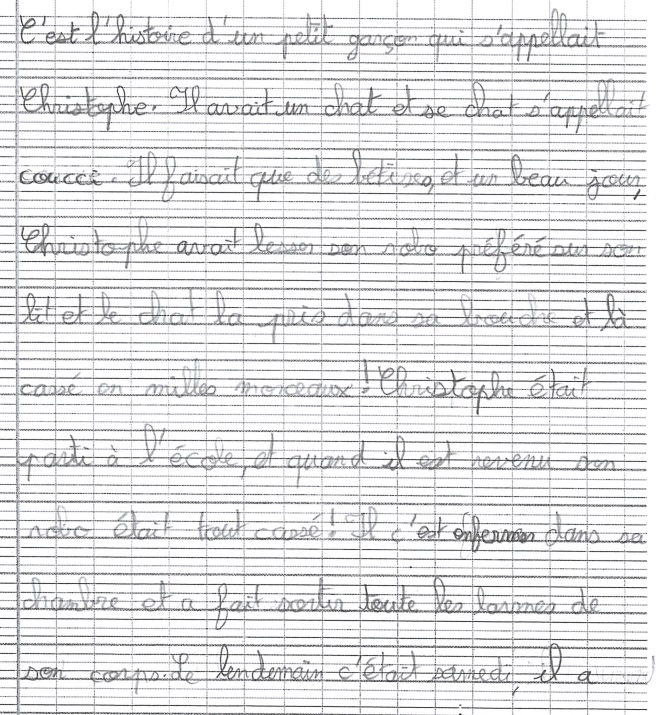 C'est l'histoire d'un petit garçon qui s'appellait
Christophe. Il avait un chat et se chat s'appellait
coucci. Il faisait que des bétises, et un beau jour,
Christophe avait lesser son robo préféré sur son
lit et le chat la pris dans sa bouche et là
cassé en milles morceaux ! Christophe était
parti à l'école, et quand il est revenu son
robo était tout cassé ! Il c'est enfermer dans sa
chambre et a fait sortir toute les larmes de
son corps. Le lendemain c'était samedi, il a